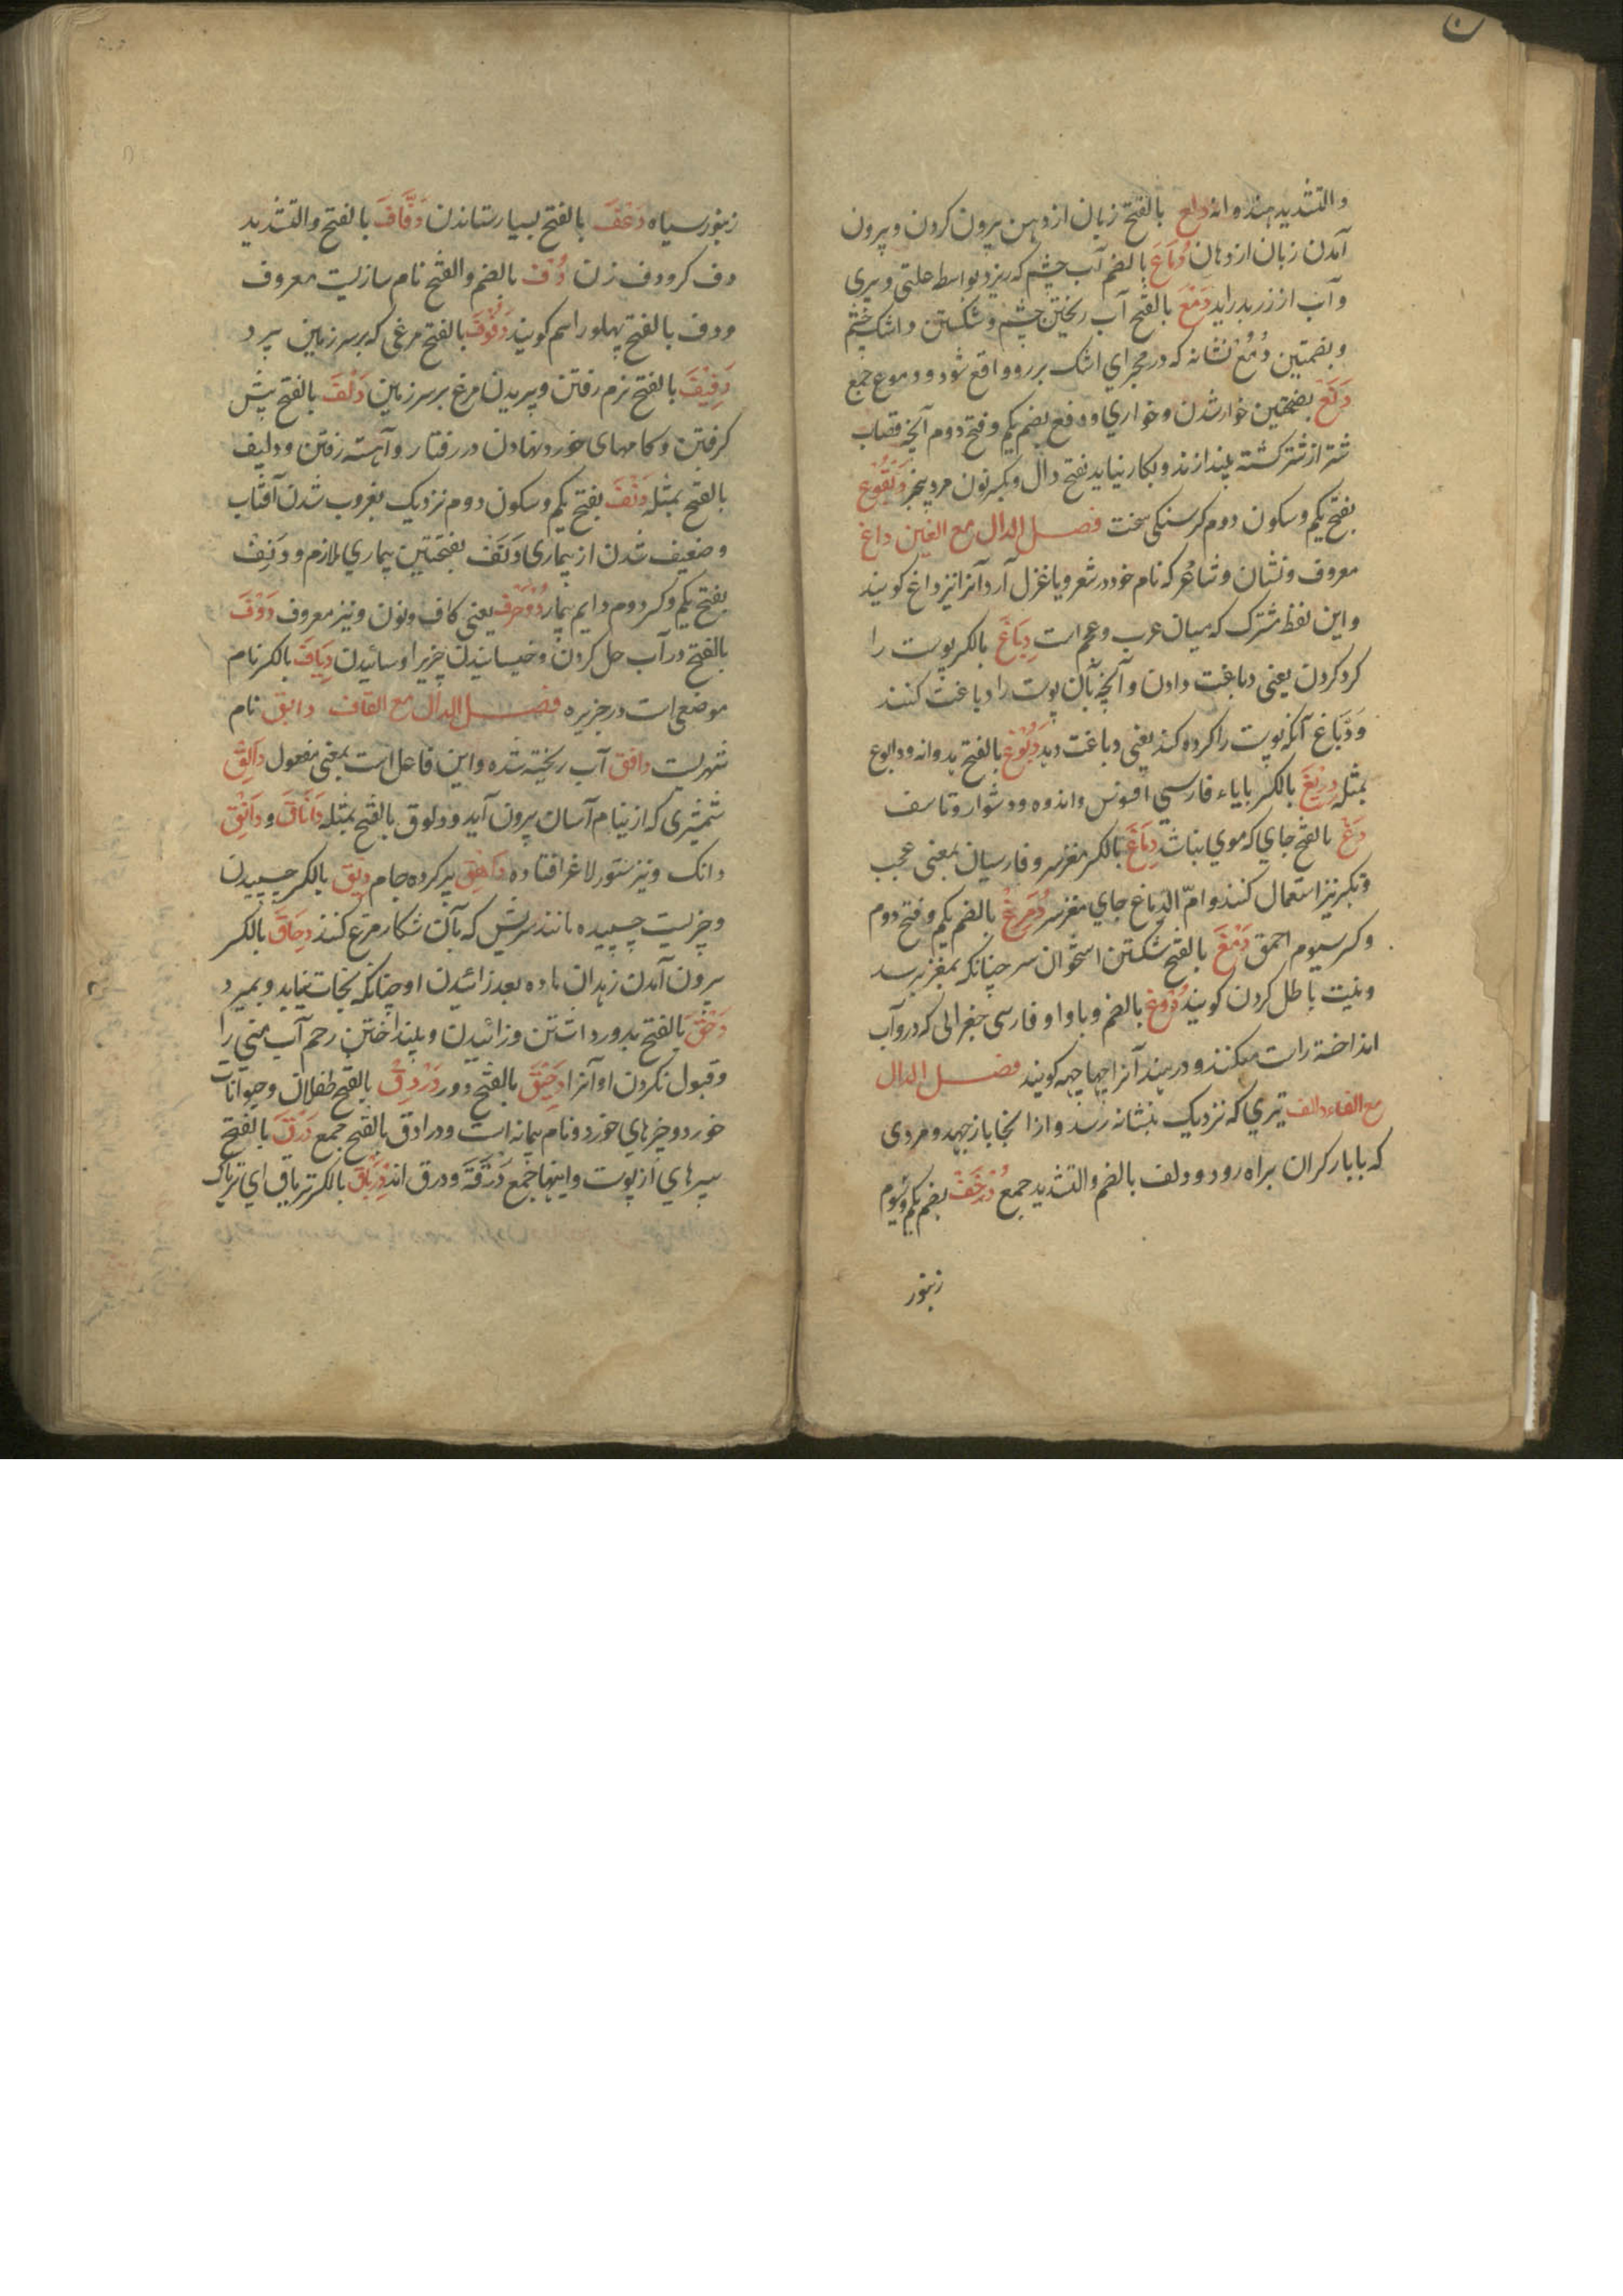 والتشدید هندوانه دلع بالفتح زبان از دهن بیرون کردن و بیرون
آمدن زبان از دهان دُماع بالضم آب چشم که ریزد بواسطه علتی و پیری
و آب از زر بدر اید دَمْع بالفتح آب ریختن چشم و شکستن و اشک چشم
و بضمتین دُمُع نشانه که در مجرای اشک بر رو واقع شود و دموع جمع
بضمتین خوار شدن و خواری و دفع بضم یکم و فتح دوم آنچه قصاب
شتر از شتر کشته بیندازند و بکار نیاید بفتح دال و بکسر نون مرد
بفتح یکم و سکون دوم کرسنکی سخت فصل الدال مع الغین داغ
معروف و نشان و شاعر که نام خود در شعر و یا غزل آرد آنرا نیز داغ کویند
و این لفظ مشترک که میان عرب و عجم است دِباغ بالکسر پوست را
کرد کردن یعنی دباغت دادن و آنچه بآن پوست را دباغت کنند
وَدَبّاغ آنکه پوست را کرده کند یعنی دباغت دهد دَبُوغ بالفتح بدوانه و دابوغ
بمثله دریغ بالکسر بایاء فارسی افسوس و اندوه و دشوار و تاسف
دَغْ بالفتح جای که موی نباشد دِماغ بالکسر مغز سر و فارسیان بمعنی عجب
و تکبر نیز استعمال کنند و امّ الدماغ جای مغز سر دُمَرِغ بالضم یکم و فتح دوم
و کسر سیوم احمق دَمْغ بالفتح شکستن استخوان سر چنانکه بمغز برسد
و نیت باطل کردن کویند دُوغ بالضم و با واو فارسی جغرالی که درو آب
انداخته راست میکنند و در هند آنرا چهاچهه کویند فصل الدال
مع الفاء دالف تیری که نزدیک بنشانه رسد و از انجا باز جهد و مردی
که با بار کران براه رود و دلف بالضم والتشدید جمع دُخَف بضم یکم و سیوم
زنبور
زنبور سیاه دَغْف بالفتح بسیار ستاندن دَفّاف بالفتح والتشدید
دف کر و دف زن دُف بالضم والفتح نام سازیست معروف
و دف بالفتح پهلو را سم کویند دَفُوف بالفتح مرغی که بر سر زمین پرد
دَفِیْف بالفتح نرم رفتن و پریدن مرغ بر سر زمین دَلْف بالفتح پیش
کرفتن و کامهای خورد نهادن در رفتار و آهسته رفتن و دلیف
بالفتح بمثله دَنْف بفتح یکم و سکون دوم نزدیک بغروب شدن آفتاب
و ضعیف شدن از بیماری و دَنَف بفتحتین بیماری ملازم و دَنِف
بفتح یکم و کسر دوم دایم بیمار دُو حرف یعنی کاف و نون و نیز معروف دَوْف
بالفتح در آب حل کردن و خیسانیدن چیزیرا و سائیدن دِیَاف بالکسر نام
موضعی است در جزیره فصل الدال مع القاف دابق نام
شهریست دافق آب ریخته شده و این فاعل است بمعنی مفعول دالِق
شمشیری که از نیام آسان بیرون آید و دلوق بالفتح بمثله دَانَاق و دَانِق
دانک و نیز ستور لاغر افتاده داهِق پر کرده جام دِبْق بالکسر چسپیدن
و چیزیست چسپیده مانند سریش که بآن شکار مرغ کنند دِحَاق بالکسر
بیرون آمدن زهدان ماده بعد زائیدن او چنانکه نجات نیابد و بمیرد
دَحْق بالفتح بدور داشتن و زائیدن و بینداختن رحم آب منی را
و قبول نکردن او آنرا دَحِیْق بالفتح دور دَرْدَق بالفتح طفلان و حیوانات
خورد و چیزهای خورد و نام پیمانه است و درادق بالفتح جمع دَرَق بالفتح
سپرهای از پوست و اینها جمع دَرَقَة و درق اند دِرْیَاق بالکسر تریاق ای تریاک